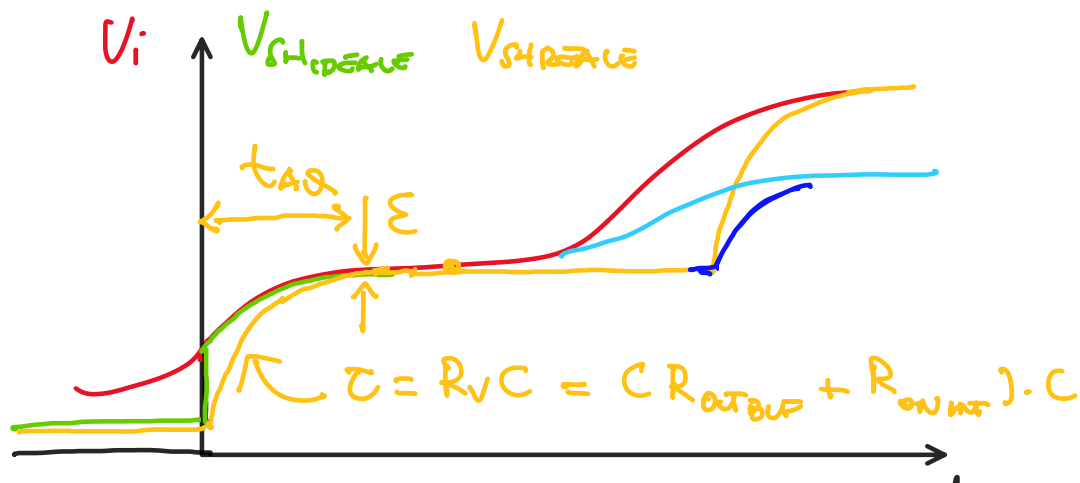 Vi V_SH_IDEALE V_SH REALE
t_AQ
ε
τ = R_V C = (R_OUT_BUF + R_ON INT) · C